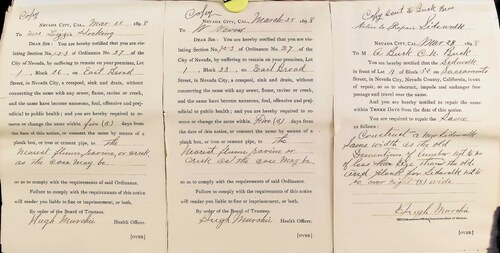 Copy
NEVADA CITY, CAL., Mar 28 189 8
To Mrs Lizzie Hocking
DEAR SIR: You are hereby notified that you are vio-
lating Section No. 1-2-3 of Ordinance No. 27. of the
City of Nevada, by suffering to remain on your premises, Lot
1, Block 26, on East Broad
Street, in Nevada City, a cesspool, sink and drain, without
connecting the same with any sewer, flume, ravine or creek,
and the same have become nauseous, foul, offensive and prej-
udicial to public health; and you are hereby required to re-
move or change the same within Five (5) days from the
date of this notice, or connect the same by means of a
plank box, or iron or cement pipe, to The
nearest flume, ravine or creek
as the case may be
so as to comply with the requirements of said Ordinance.
Failure to comply with the requirements of this notice
will render you liable to fine or imprisonment, or both.
By order of the Board of Trustees.
Hugh Murchie
Health Officer.
[OVER]
Copy
NEVADA CITY, CAL., March 28 189 8
To
DEAR SIR: You are hereby notified that you are vio-
lating Section No. 1-2-3 of Ordinance No. 27 of the
City of Nevada, by suffering to remain on your premises, Lot
1, Block 23, on East Broad
Street, in Nevada City, a cesspool, sink and drain, without
connecting the same with any sewer, flume, ravine or creek,
and the same have become nauseous, foul, offensive and prej-
udicial to public health; and you are hereby required to re-
move or change the same within Five (5) days from the
date of this notice, or connect the same by means of a
plank box, or iron or cement pipe, to The
Nearest flume ravine or
Creek as the case may be
so as to comply with the requirements of said Ordinance.
Failure to comply with the requirements of this notice
will render you liable to fine or imprisonment, or both.
By order of the Board of Trustees.
Hugh Murchie
Health Officer.
[OVER]
Copy Sent to Buck Bros
Notice to Repair Sidewalk
NEVADA CITY, CAL., Mar 28 189 8
M A. Buck C. H. Buck
You are hereby notified that the Sidewalk
in front of Lot of on Sacramento
Street, in Nevada City, Nevada County, California, is out
of repair, so as to obstruct, impede and endanger free
passage and travel over the same.
And you are hereby notified to repair the same within
THREE DAYS from the date of this notice.
You are hereby required to repair the Same
as follows:
Construct a new Sidewalk
same width as the old
Dimentions of lumber not to be
of less than size than the old
and plank for Sidewalk not to
be over eight (8) wide
Hugh Murchie
[OVER]